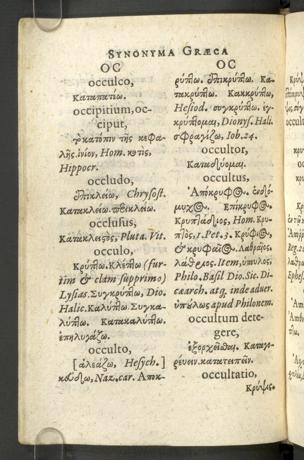 SYNONYMA GRÆCA
OC
occulco,
Καταπατέω.
occipitium, oc-
ciput,
τὸ κατόπιν τῆς κεφα-
λῆς. ἰνίον, Hom. κοτις,
Hippocr.
occludo,
ἀποκλείω, Chrysost.
Κατακλείω.
occlusus,
Κατακλειστὸς, Pluta. Vit.
occulo,
Κρύπτω. Κλέπτω (fur-
tim & clam supprimo)
Lysias. Συγκρύπτω, Dio.
Halic. Καλύπτω. Συγκα-
λύπτω. Κατακαλύπτω.
ἐπηλυγάζω.
occulto,
[ἀλεάζω, Hesych.]
Naz. car. Αποκ-
OC
ρύπτω. ἐπικρύπτω. Κα-
τακρύπτω. Κακκρύπτω,
Hesiod. συγκρύπτω. ἐγ-
κρύπτομαι, Dionys. Hali.
σφραγίζω, Iob. 24.
occultor,
Καταδύομαι.
occultus,
Ἀπόκρυφος. ἐνδό-
μυχος. Επίκρυφος.
Κρυπτάδιος, Hom. Κρυ-
πτὸς, 1. Pet. 3. Κρύφιος,
& κρυφαῖος. Λαθραῖος,
λάθριος. Item, ὕπουλος,
Philo. Basil Dio. Sic. Di-
caearch. atq, inde aduer.
ὑπούλως apud Philonem.
occultum dete-
gere,
Καταγο-
ρεύειν. κατατειπεῖν.
occultatio,
Κρύψις.